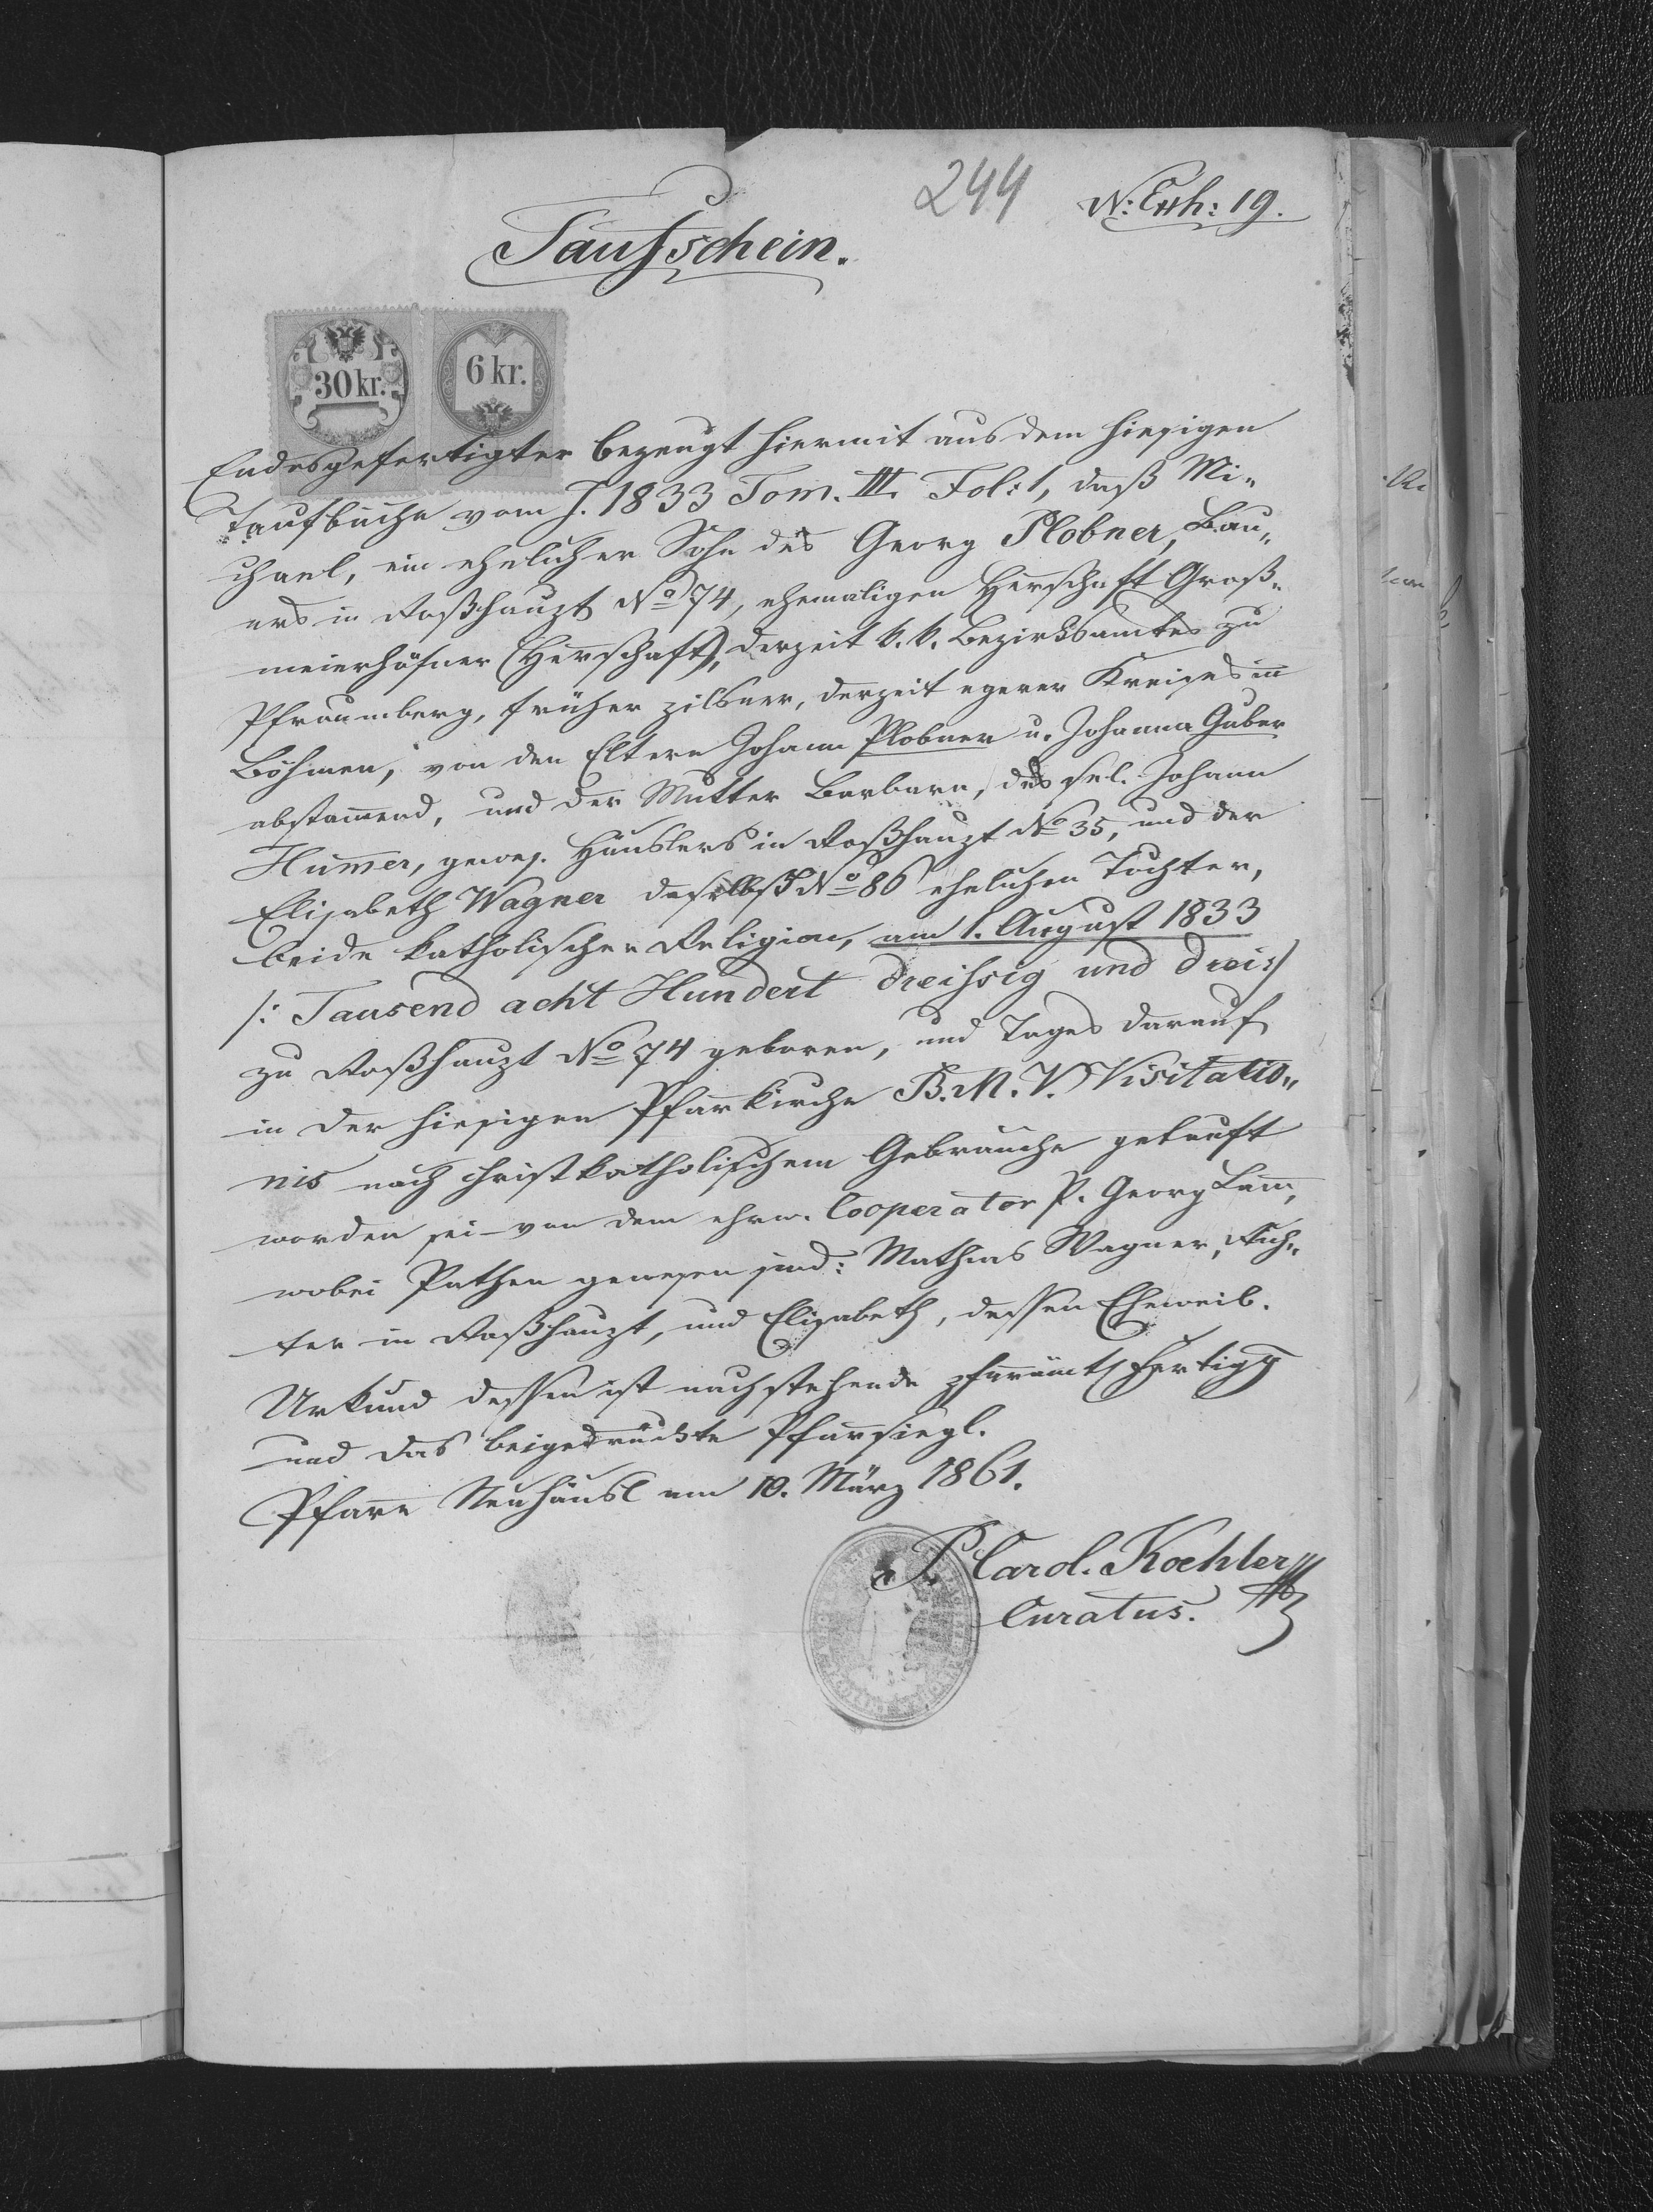 244
N: Exh: 19.
Taufschein.
30 kr.
6 kr.
Endesgefertigter bezeugt hiermit aus dem hiesigen
Taufbuche vom J. 1833 Tom. III. Fol: 1, daß Mi„
chael, ein ehelicher Sohn des Georg Plobner, Bau„
ers in Roßhaupt No 74, ehemaligen Herrschaft Groß„
meierhöfner (Herrschaft), derzeit k. k. Bezirksamtes zu
Pfraumberg, früher pilsner, derzeit egerer Kreises in
Böhmen, von den Eltern Johann Plobner u. Johanna Guber
abstam̅end, und der Mutter Barbara, des sel. Johann
Hum̅er, gewes. Häuslers in Roßhaupt No 35, und der
Elisabeth Wagner daselbst No 86 ehelichen Tochter,
beide katholischer Religion, am 1. August 1833
/: Tausend acht Hundert dreissig und drei :/
zu Roßhaupt No 74 geboren, und Tages darauf
in der hiesigen Pfarrkirche B. M. V. Visitatio„
nis nach christkatholischem Gebrauche getauft
worden sei – von dem ehrw. Cooperator P. Georg Lam̅,
wobei Pathen gewesen sind: Mathias Wagner, Rich„
ter in Roßhaupt, und Elisabeth, dessen Eheweib.
Urkund dessen ist nachstehende pfarrämtl Fertigg
und das beigedrückte Pfarrsiegl.
Pfarre Neuhäusl am 10. März 1861.
P. Carol. Koehler
Curatus.